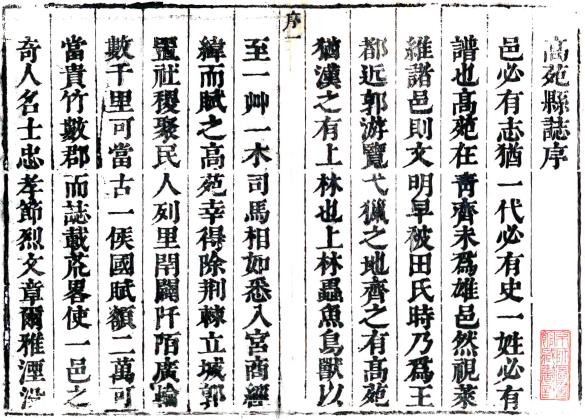 高苑縣誌序
邑必有志猶一代必有史一姓必有
譜也高苑在青齊未為雄邑然視萊
維諸邑則文明早被田氏時乃為王
都近郭游覽弋獵之地齊之有高苑
猶漢之有上林也上林蟲魚鳥獸以
序一
至一艸一木司馬相如悉入宮商經
緯而賦之高苑幸得除荆棘立城郭
置社稷聚民人列里閈闢阡陌廣輪
數千里可當古一侯國賦額二萬可
當貴竹數郡而誌載荒畧使一邑之
奇人名士忠孝節烈文章爾雅湮